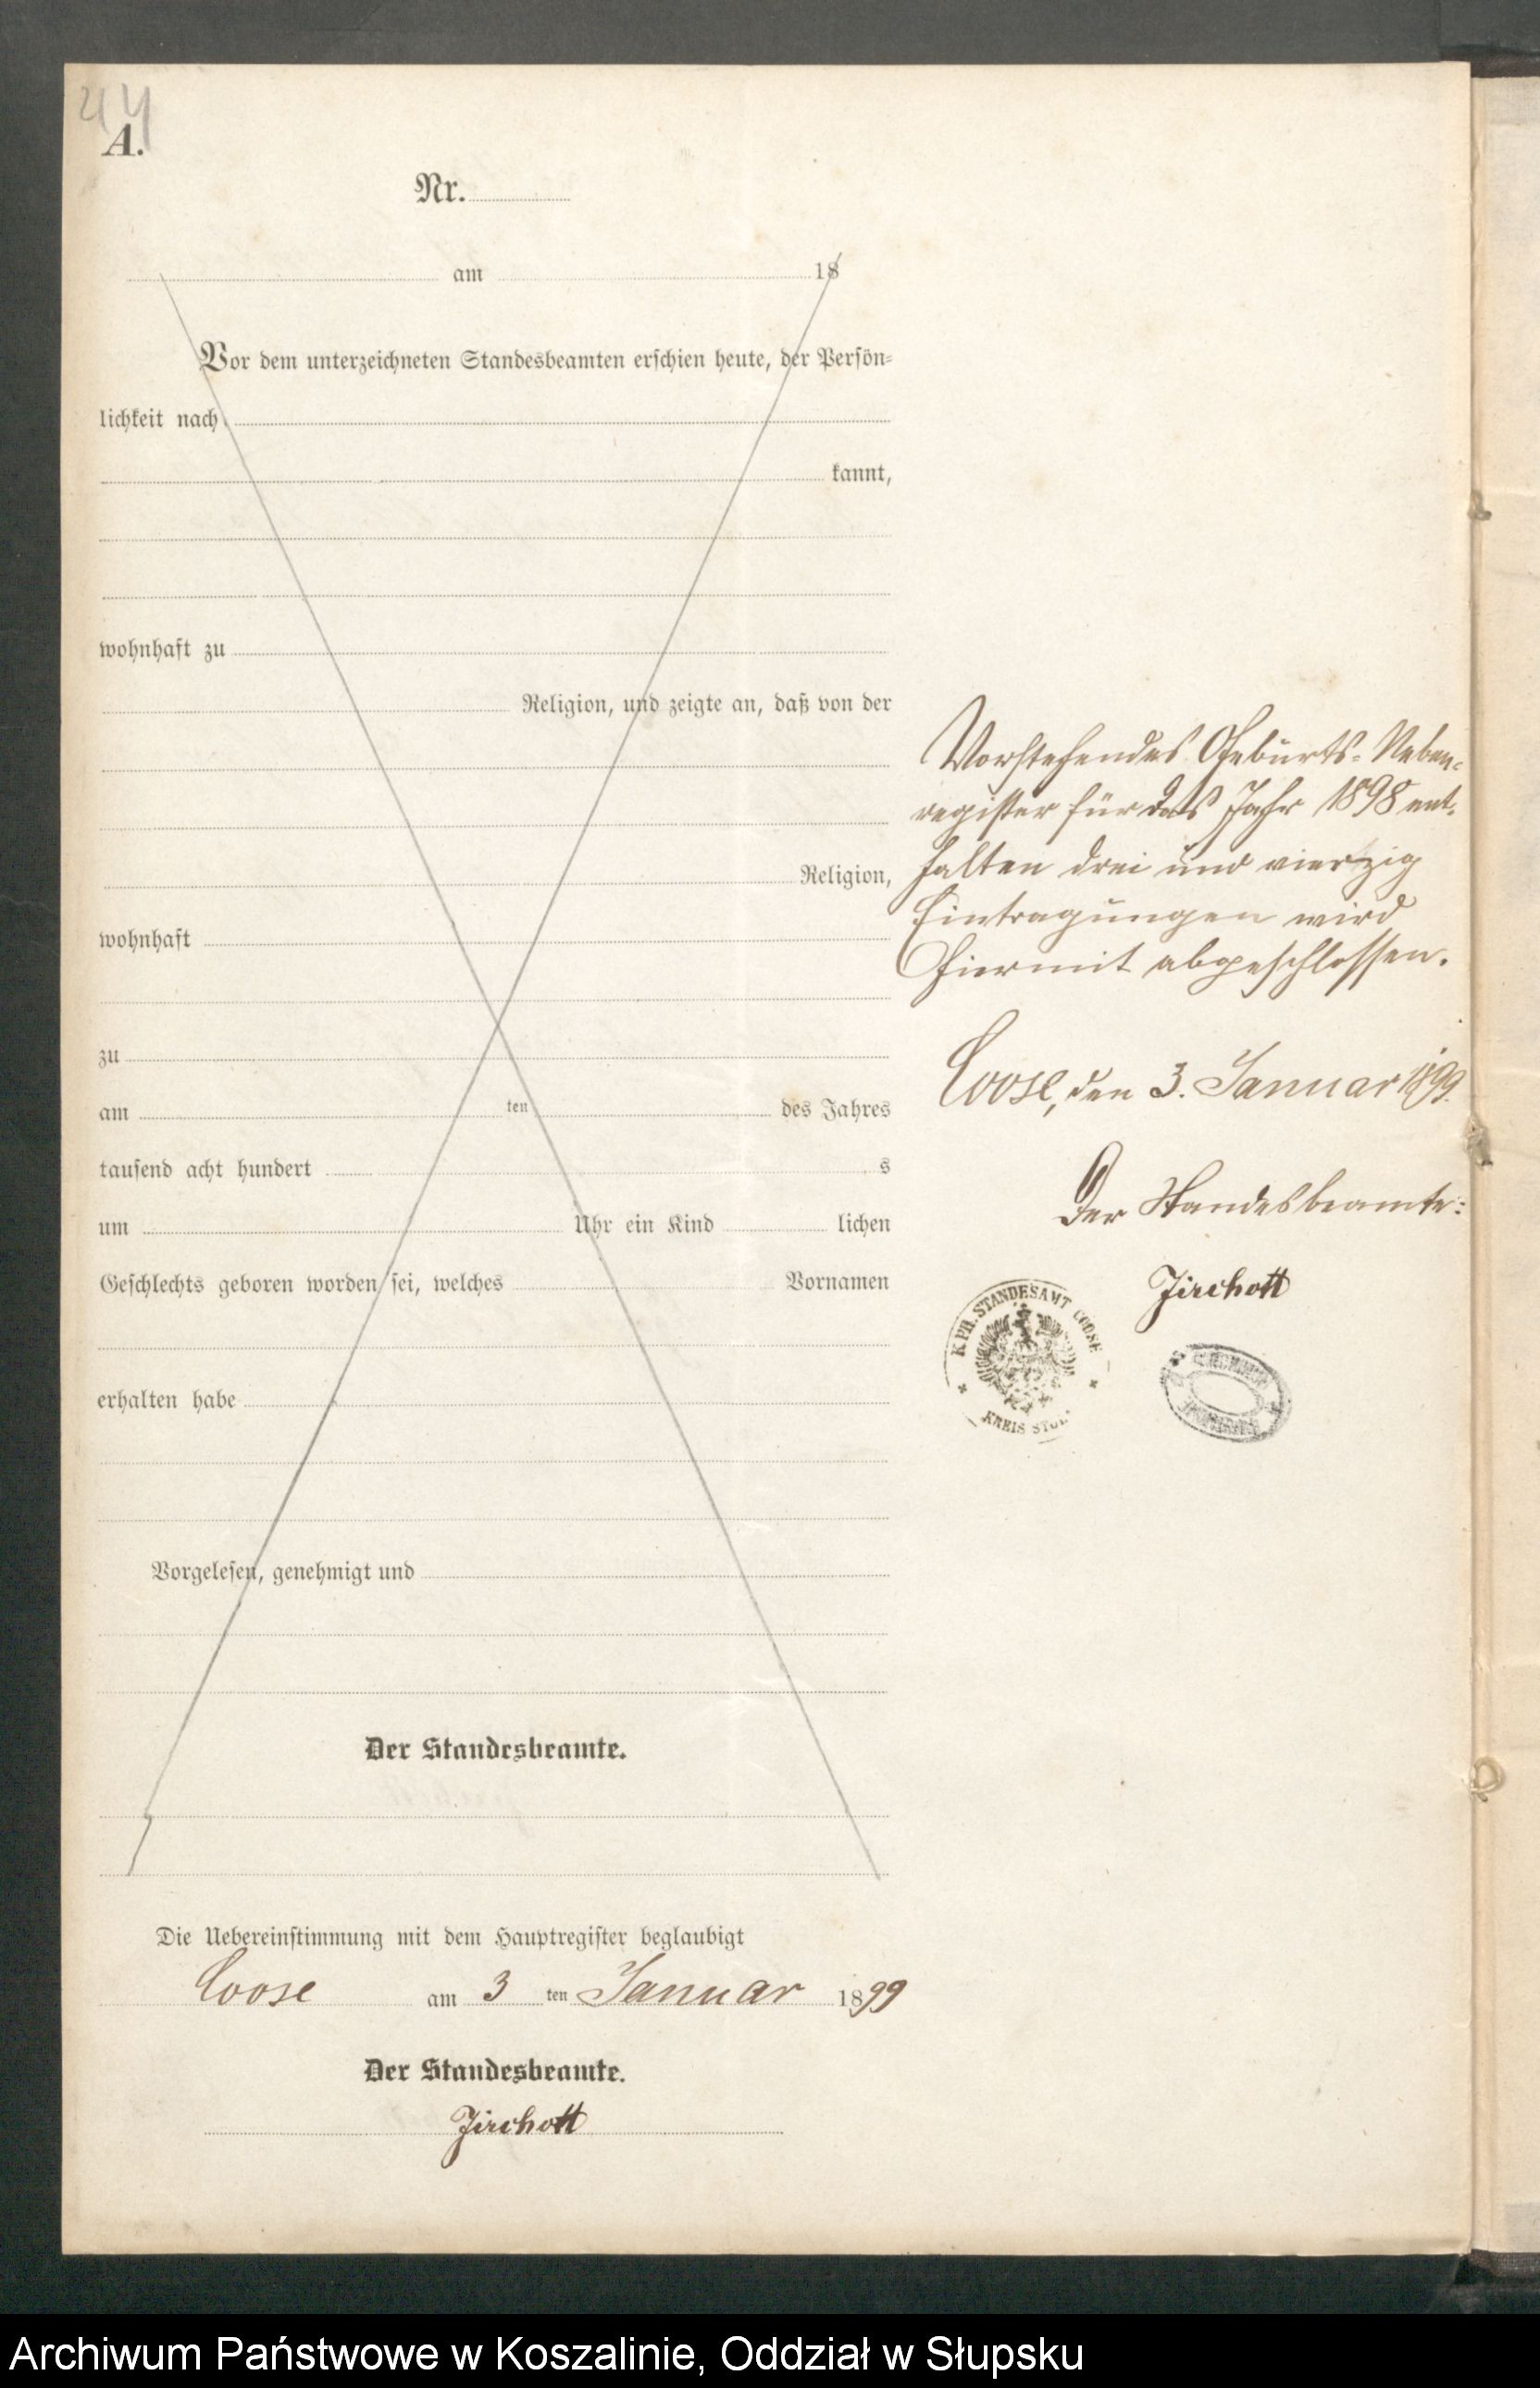 44
A.
Nr.
am 18
Vor dem unterzeichneten Standesbeamten erschien heute, der Persön-
lichkeit nach
kannt,
wohnhaft zu
Religion, und zeigte an, daß von der
Religion,
wohnhaft
zu
am ten des Jahres
tausend acht hundert s
um Uhr ein Kind lichen
Geschlechts geboren worden sei, welches Vornamen
erhalten habe
Vorgelesen, genehmigt und
Der Standesbeamte.
Die Uebereinstimmung mit dem Hauptregister beglaubigt
Coose am 3 ten Januar 1899
Der Standesbeamte.
Zirchott
Vorstehendes Geburts-Neben-
register für das Jahr 1898 ent-
halten drei und vierzig
Eintragungen wird
hiermit abgeschlossen.
Coose, den 3. Januar 1899.
Der Standesbeamte:
Zirchott
K. PR. STANDESAMT COOSE
KREIS STOL
Archiwum Państwowe w Koszalinie, Oddział w Słupsku